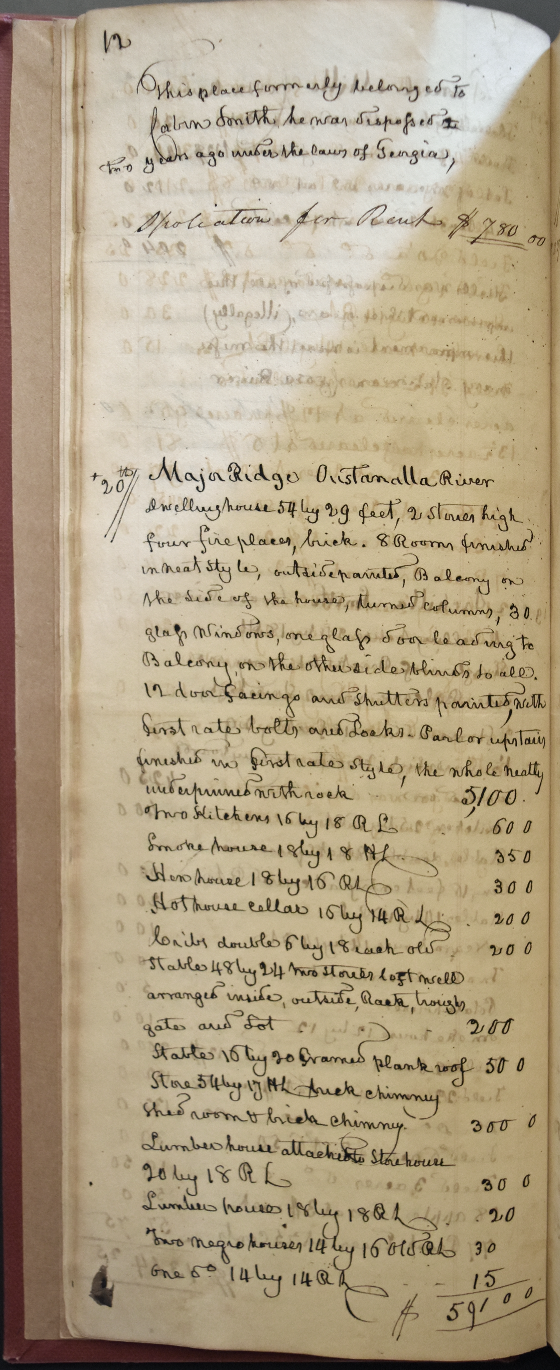 12
This place formerly belonged to
Jabin Smith he was disposed
two years ago under the laws of Georgia,
Spoliation for Rent $780 00
20th Major Ridge Oustanalla River
Dwelling house 54 by 29 feet, 2 Stories high
four fire places, brick. 8 Rooms finished
in neat style, outside painted, Balcony on
the side of the house, turned columns, 30
glass Windows, one glass door leading to
Balcony, on the other side blinds to all.
12 door facings and shutters painted, with
first rate bolts and Locks - Parlor upstairs
finished in first rate style, the whole neatly
underpinned with rock 5,100.
Two Kitchens 16 by 18 R L 60 0
Smoke house 18 by 18 HL 35 0
Hen house 18 by 16 RL 30 0
Hot house cellar 16 by 14 R L 20 0
Cribs double 6 by 18 each old 20 0
Stable 48 by 24 two stories loft well
arranged inside, outside, Rack, troughs
gate and Lot 200
Stables 16 by 20 framed plank roof 50 0
Store 54 by 17 HL brick chimney
Shed room & brick chimney. 300 0
Lumber house attached to Storehouse
20 by 18 R L 30 0
Lumber house 18 by 18 RL 20
Two negro houses 14 by 16 Old RL 30
One do 14 by 14 R L 15
$ 5910 0